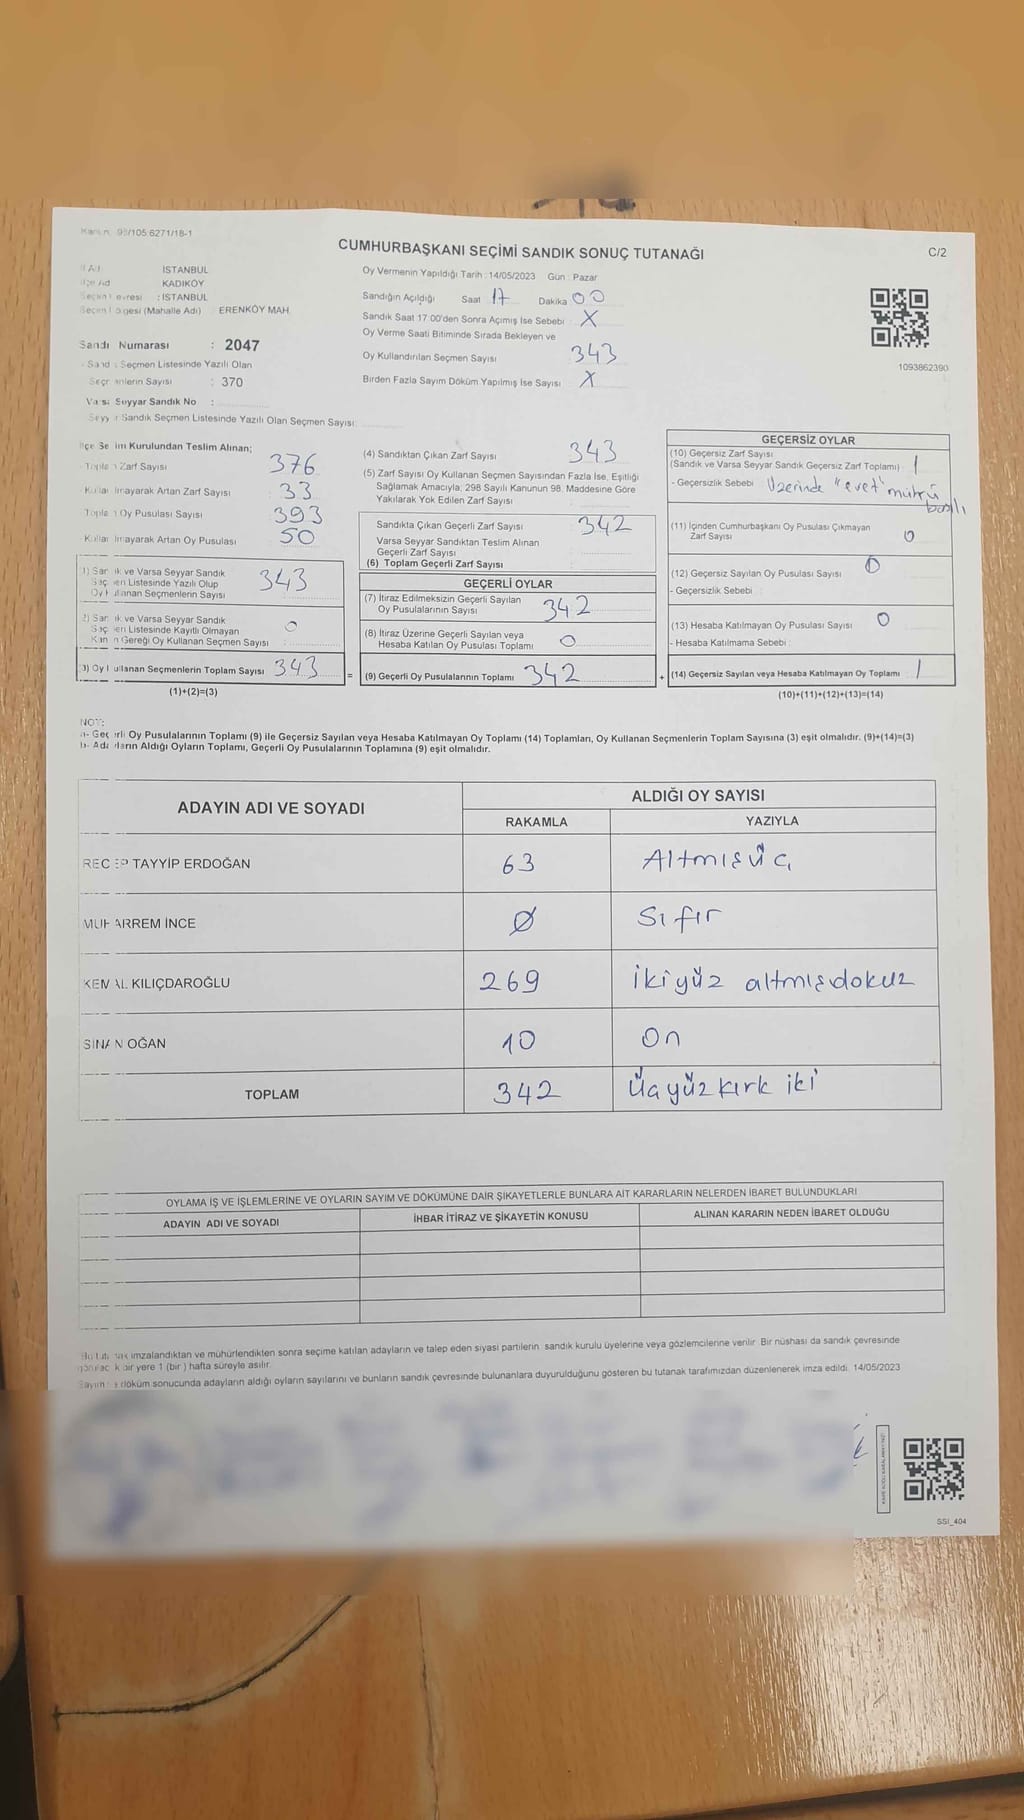 98/105 6271/18-1
CUMHURBAŞKANI SEÇİMİ SANDIK SONUÇ TUTANAĞI
C/2
İSTANBUL
KADIKÖY
: İSTANBUL
(Mahalle Adı) : ERENKÖY MAH.
Numarası : 2047
Seçmen Listesinde Yazılı Olan
Sayısı : 370
Seyyar Sandık No :
Sandık Seçmen Listesinde Yazılı Olan Seçmen Sayısı:
Oy Vermenin Yapıldığı Tarih : 14/05/2023 Gün : Pazar
Sandığın Açıldığı Saat 17 Dakika 00
Sandık Saat 17:00'den Sonra Açımış İse Sebebi : X
Oy Verme Saati Bitiminde Sırada Bekleyen ve
Oy Kullandırılan Seçmen Sayısı 343
Birden Fazla Sayım Döküm Yapılmış İse Sayısı X
1093862390
Kurulundan Teslim Alınan;
Zarf Sayısı 376
Artan Zarf Sayısı 33
Oy Pusulası Sayısı 393
Artan Oy Pusulası 50
ve Varsa Seyyar Sandık
Listesinde Yazılı Olup
Seçmenlerin Sayısı 343
ve Varsa Seyyar Sandık
Listesinde Kayıtlı Olmayan
Gereği Oy Kullanan Seçmen Sayısı 0
Seçmenlerin Toplam Sayısı 343
(1)+(2)=(3)
(4) Sandıktan Çıkan Zarf Sayısı 343
(5) Zarf Sayısı Oy Kullanan Seçmen Sayısından Fazla İse, Eşitliği
Sağlamak Amacıyla, 298 Sayılı Kanunun 98. Maddesine Göre
Yakılarak Yok Edilen Zarf Sayısı
Sandıkta Çıkan Geçerli Zarf Sayısı 342
Varsa Seyyar Sandıktan Teslim Alınan
Geçerli Zarf Sayısı
(6) Toplam Geçerli Zarf Sayısı
GEÇERLİ OYLAR
(7) İtiraz Edilmeksizin Geçerli Sayılan
Oy Pusulalarının Sayısı 342
(8) İtiraz Üzerine Geçerli Sayılan veya
Hesaba Katılan Oy Pusulası Toplamı 0
= (9) Geçerli Oy Pusulalarının Toplamı 342
GEÇERSİZ OYLAR
(10) Geçersiz Zarf Sayısı
(Sandık ve Varsa Seyyar Sandık Geçersiz Zarf Toplamı) 1
- Geçersizlik Sebebi : Üzerinde "evet" mührü
basılı
(11) İçinden Cumhurbaşkanı Oy Pusulası Çıkmayan
Zarf Sayısı 0
(12) Geçersiz Sayılan Oy Pusulası Sayısı 0
- Geçersizlik Sebebi :
(13) Hesaba Katılmayan Oy Pusulası Sayısı 0
- Hesaba Katılmama Sebebi :
+ (14) Geçersiz Sayılan veya Hesaba Katılmayan Oy Toplamı 1
(10)+(11)+(12)+(13)=(14)
NOT:
Oy Pusulalarının Toplamı (9) ile Geçersiz Sayılan veya Hesaba Katılmayan Oy Toplamı (14) Toplamları, Oy Kullanan Seçmenlerin Toplam Sayısına (3) eşit olmalıdır. (9)+(14)=(3)
Aldığı Oyların Toplamı, Geçerli Oy Pusulalarının Toplamına (9) eşit olmalıdır.
ADAYIN ADI VE SOYADI ALDIĞI OY SAYISI
RAKAMLA YAZIYLA
RECEP TAYYİP ERDOĞAN 63 Altmışüç
MUHARREM İNCE 0 Sıfır
KEMAL KILIÇDAROĞLU 269 ikiyüz altmışdokuz
SİNAN OĞAN 10 On
TOPLAM 342 Üçyüzkırk iki
OYLAMA İŞ VE İŞLEMLERİNE VE OYLARIN SAYIM VE DÖKÜMÜNE DAİR ŞİKAYETLERLE BUNLARA AİT KARARLARIN NELERDEN İBARET BULUNDUKLARI
ADAYIN ADI VE SOYADI İHBAR İTİRAZ VE ŞİKAYETİN KONUSU ALINAN KARARIN NEDEN İBARET OLDUĞU
imzalandıktan ve mühürlendikten sonra seçime katılan adayların ve talep eden siyasi partilerin sandık kurulu üyelerine veya gözlemcilerine verilir. Bir nüshası da sandık çevresinde
bir yere 1 (bir) hafta süreyle asılır.
döküm sonucunda adayların aldığı oyların sayılarını ve bunların sandık çevresinde bulunanlara duyurulduğunu gösteren bu tutanak tarafımızdan düzenlenerek imza edildi. 14/05/2023
SSI_404